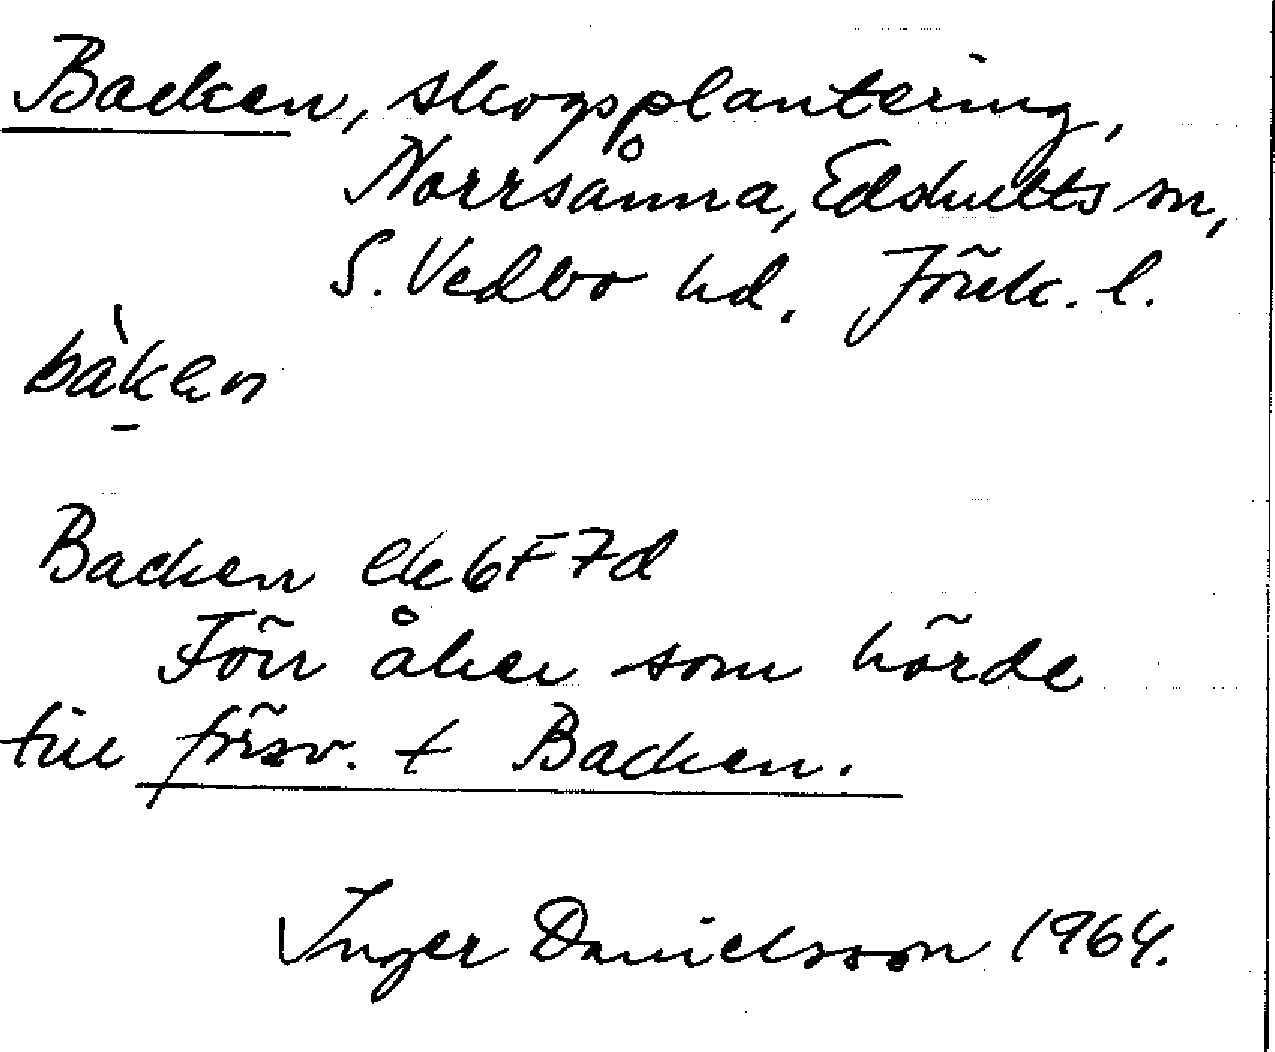 Backen, skogsplantering,
Norrsånna, Edshults sn,
S. Vedbo hd. Jönk. l.
bàk̠en
Backen ek 6F7d
Förr åker som hörde
till försv. t Backen.
Inger Danielsson 1964.